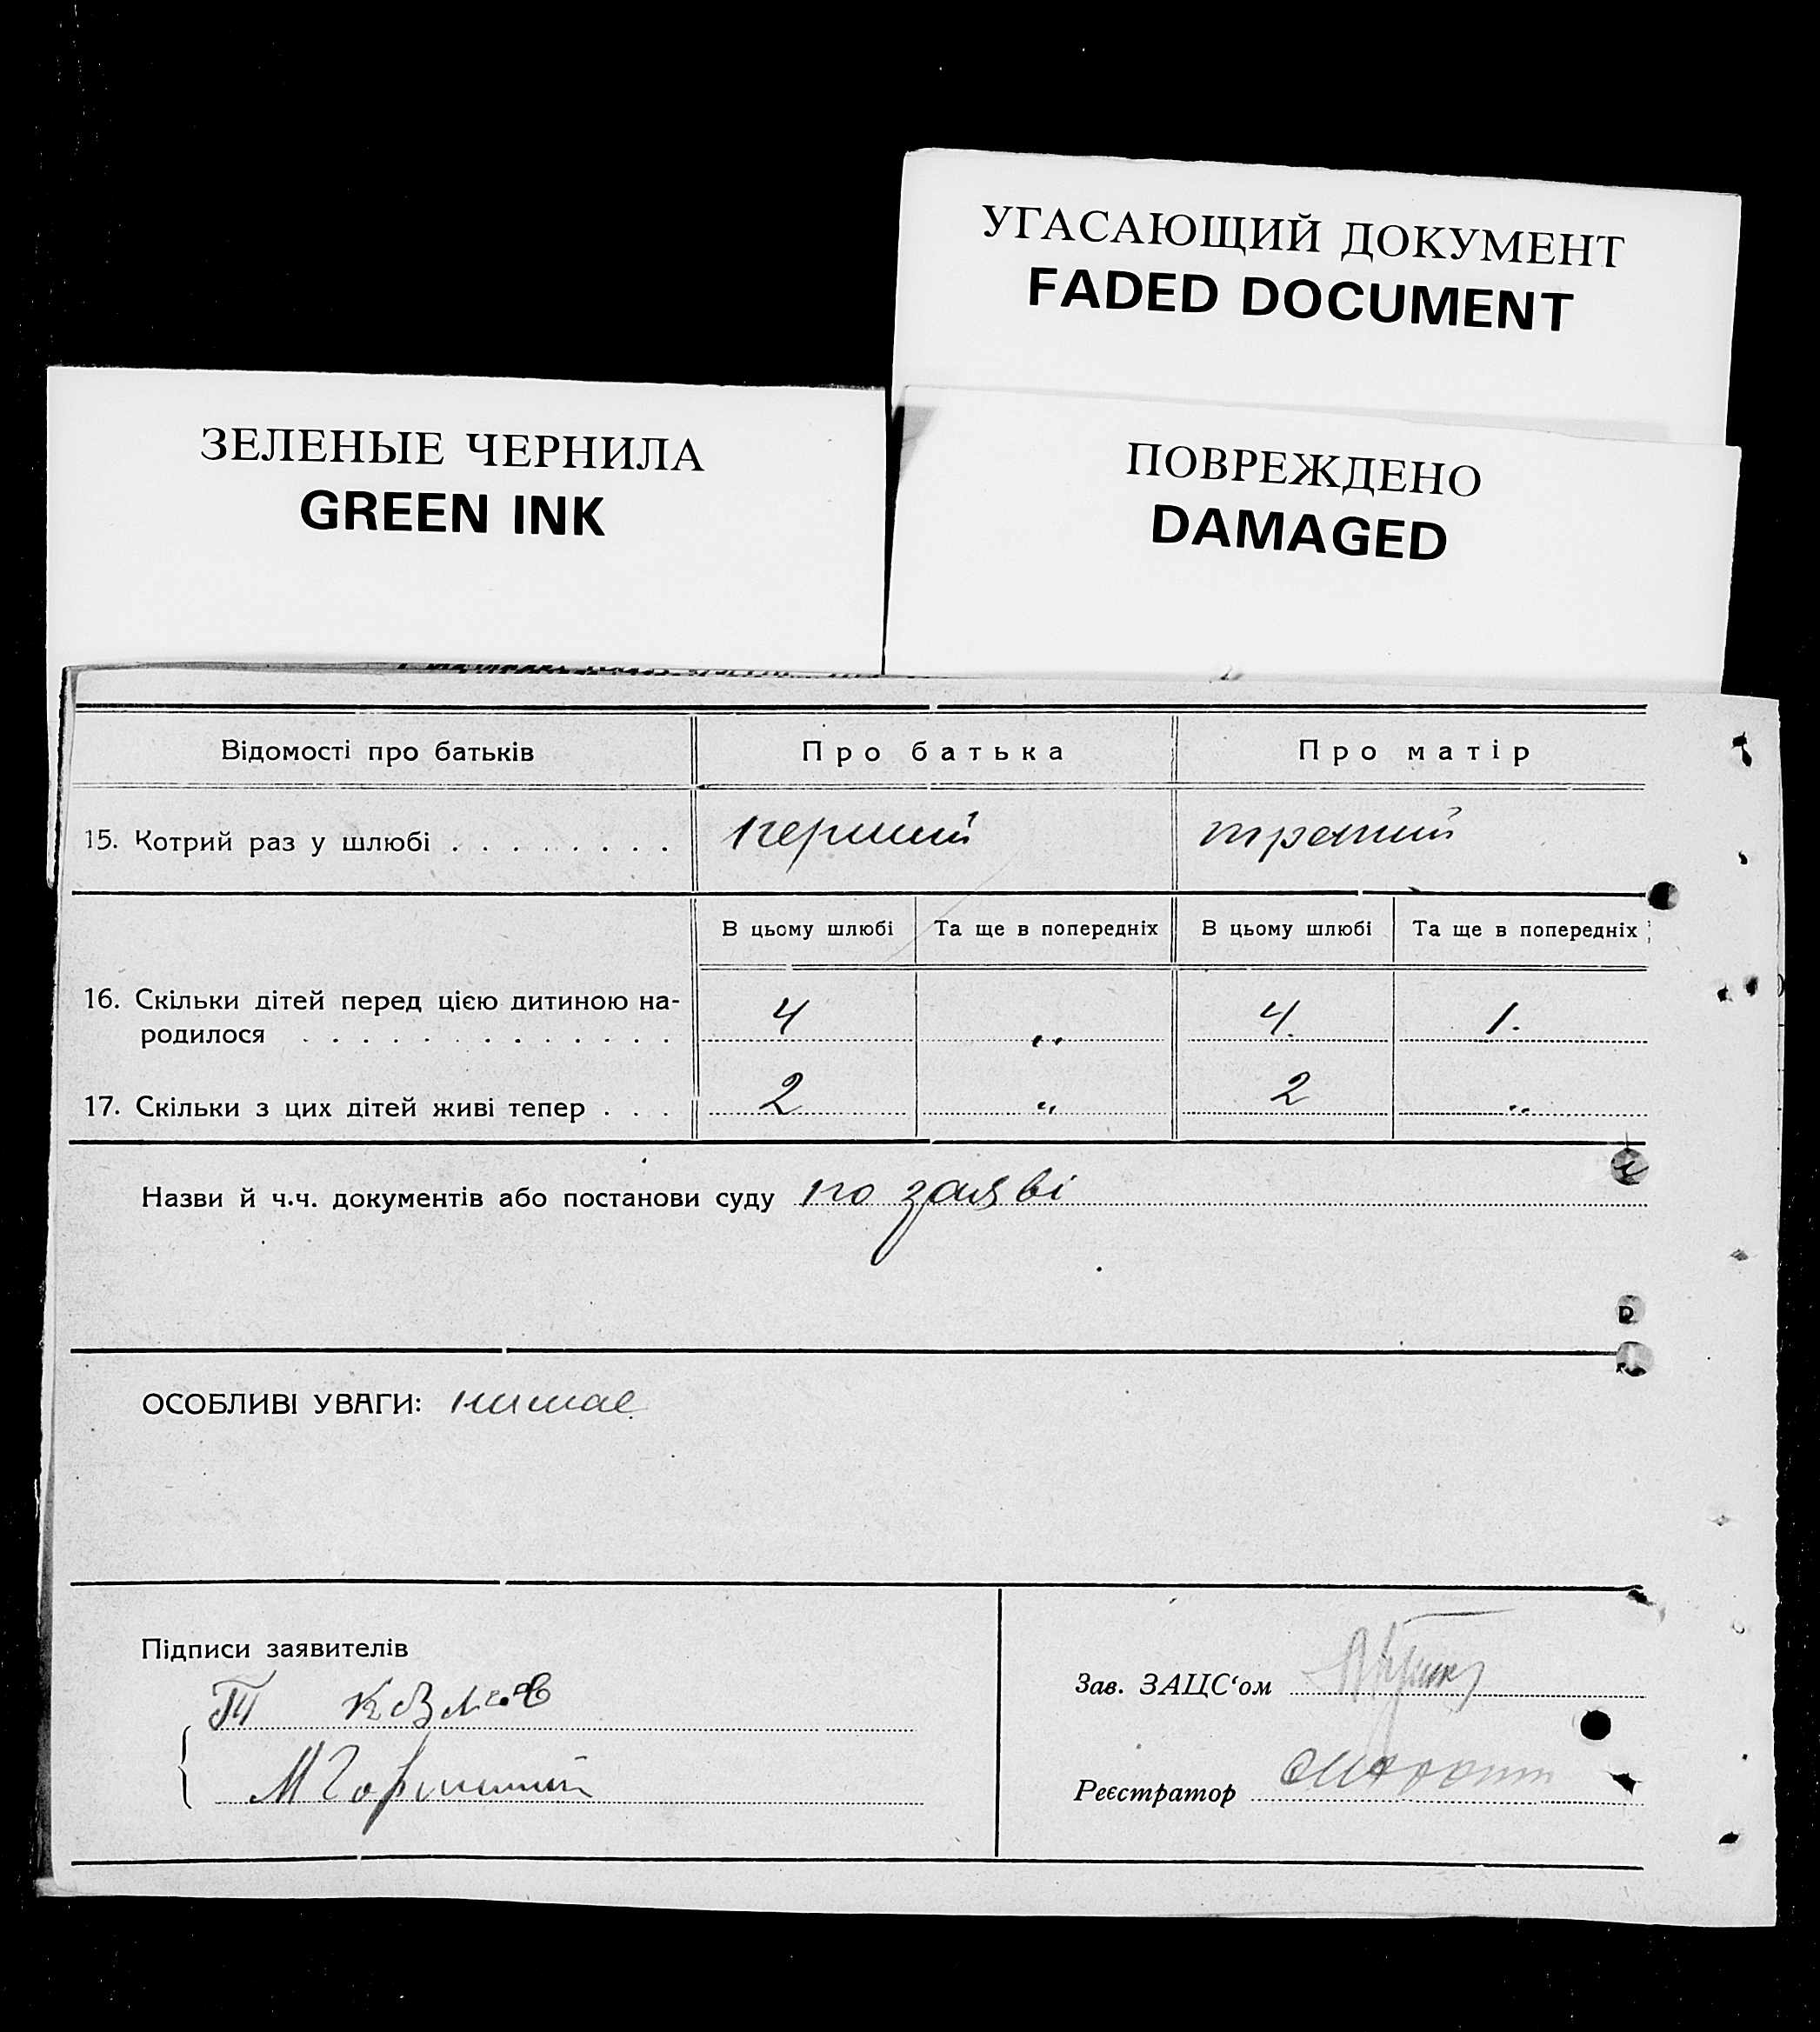 УГАСАЮЩИЙ ДОКУМЕНТ
FADED DOCUMENT
ЗЕЛЕНЫЕ ЧЕРНИЛА
GREEN INK
ПОВРЕЖДЕНО
DAMAGED
Відомості про батьків Про батька Про матір
15. Котрий раз у шлюбі . . . . . . . . перший третий
В цьому шлюбі Та ще в попередніх В цьому шлюбі Та ще в попередніх
16. Скільки дітей перед цією дитиною на-
родилося . . . . . . . . . . . . . 4 „ 4. 1.
17. Скільки з цих дітей живі тепер . . . 2 „ 2 „
Назви й ч.ч. документів або постанови суду по заяві
ОСОБЛИВІ УВАГИ: нимае
Підписи заявителів
Зав. ЗАЦС‘ом
М
Реєстратор